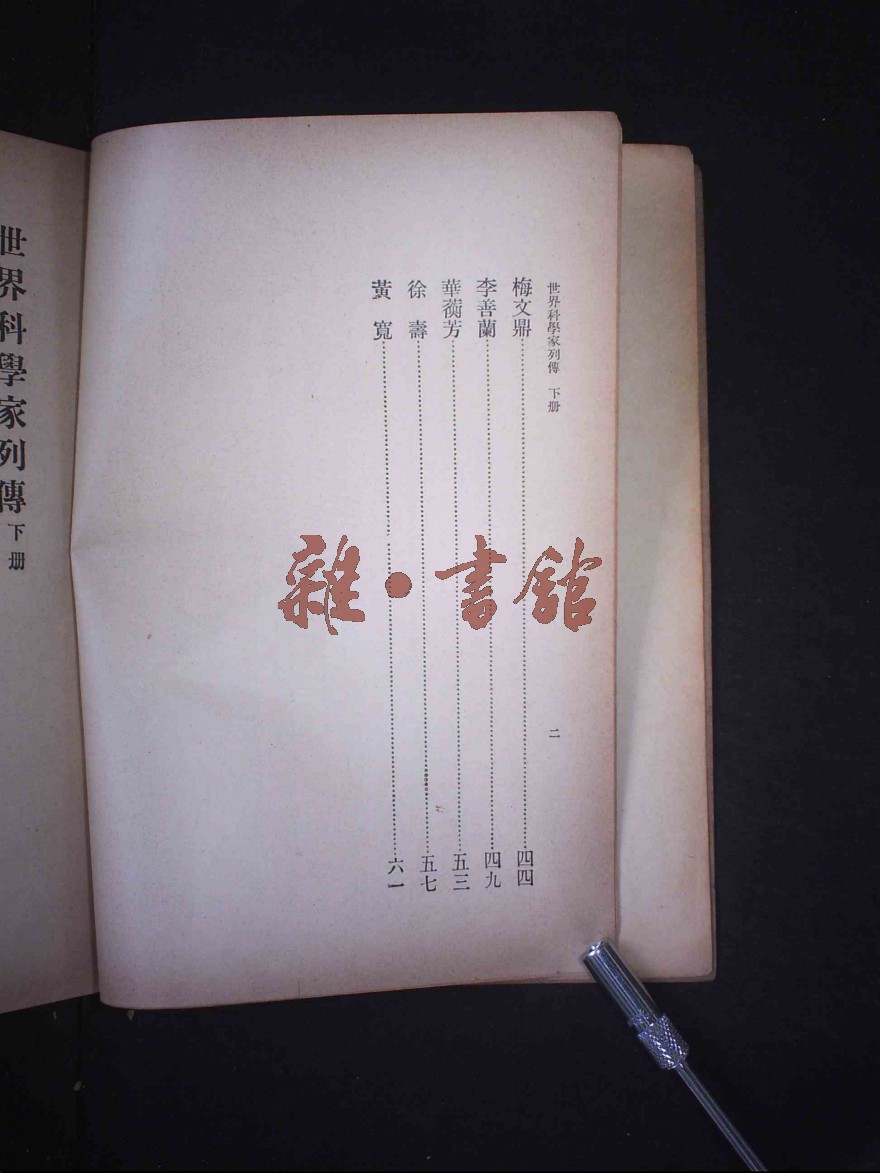 世界科學家列傳 下册
二
梅文鼎……四四
李善蘭……四九
華蘅芳……五三
徐 壽……五七
黃 寬……六一
世界科學家列傳 下册
雜·書館